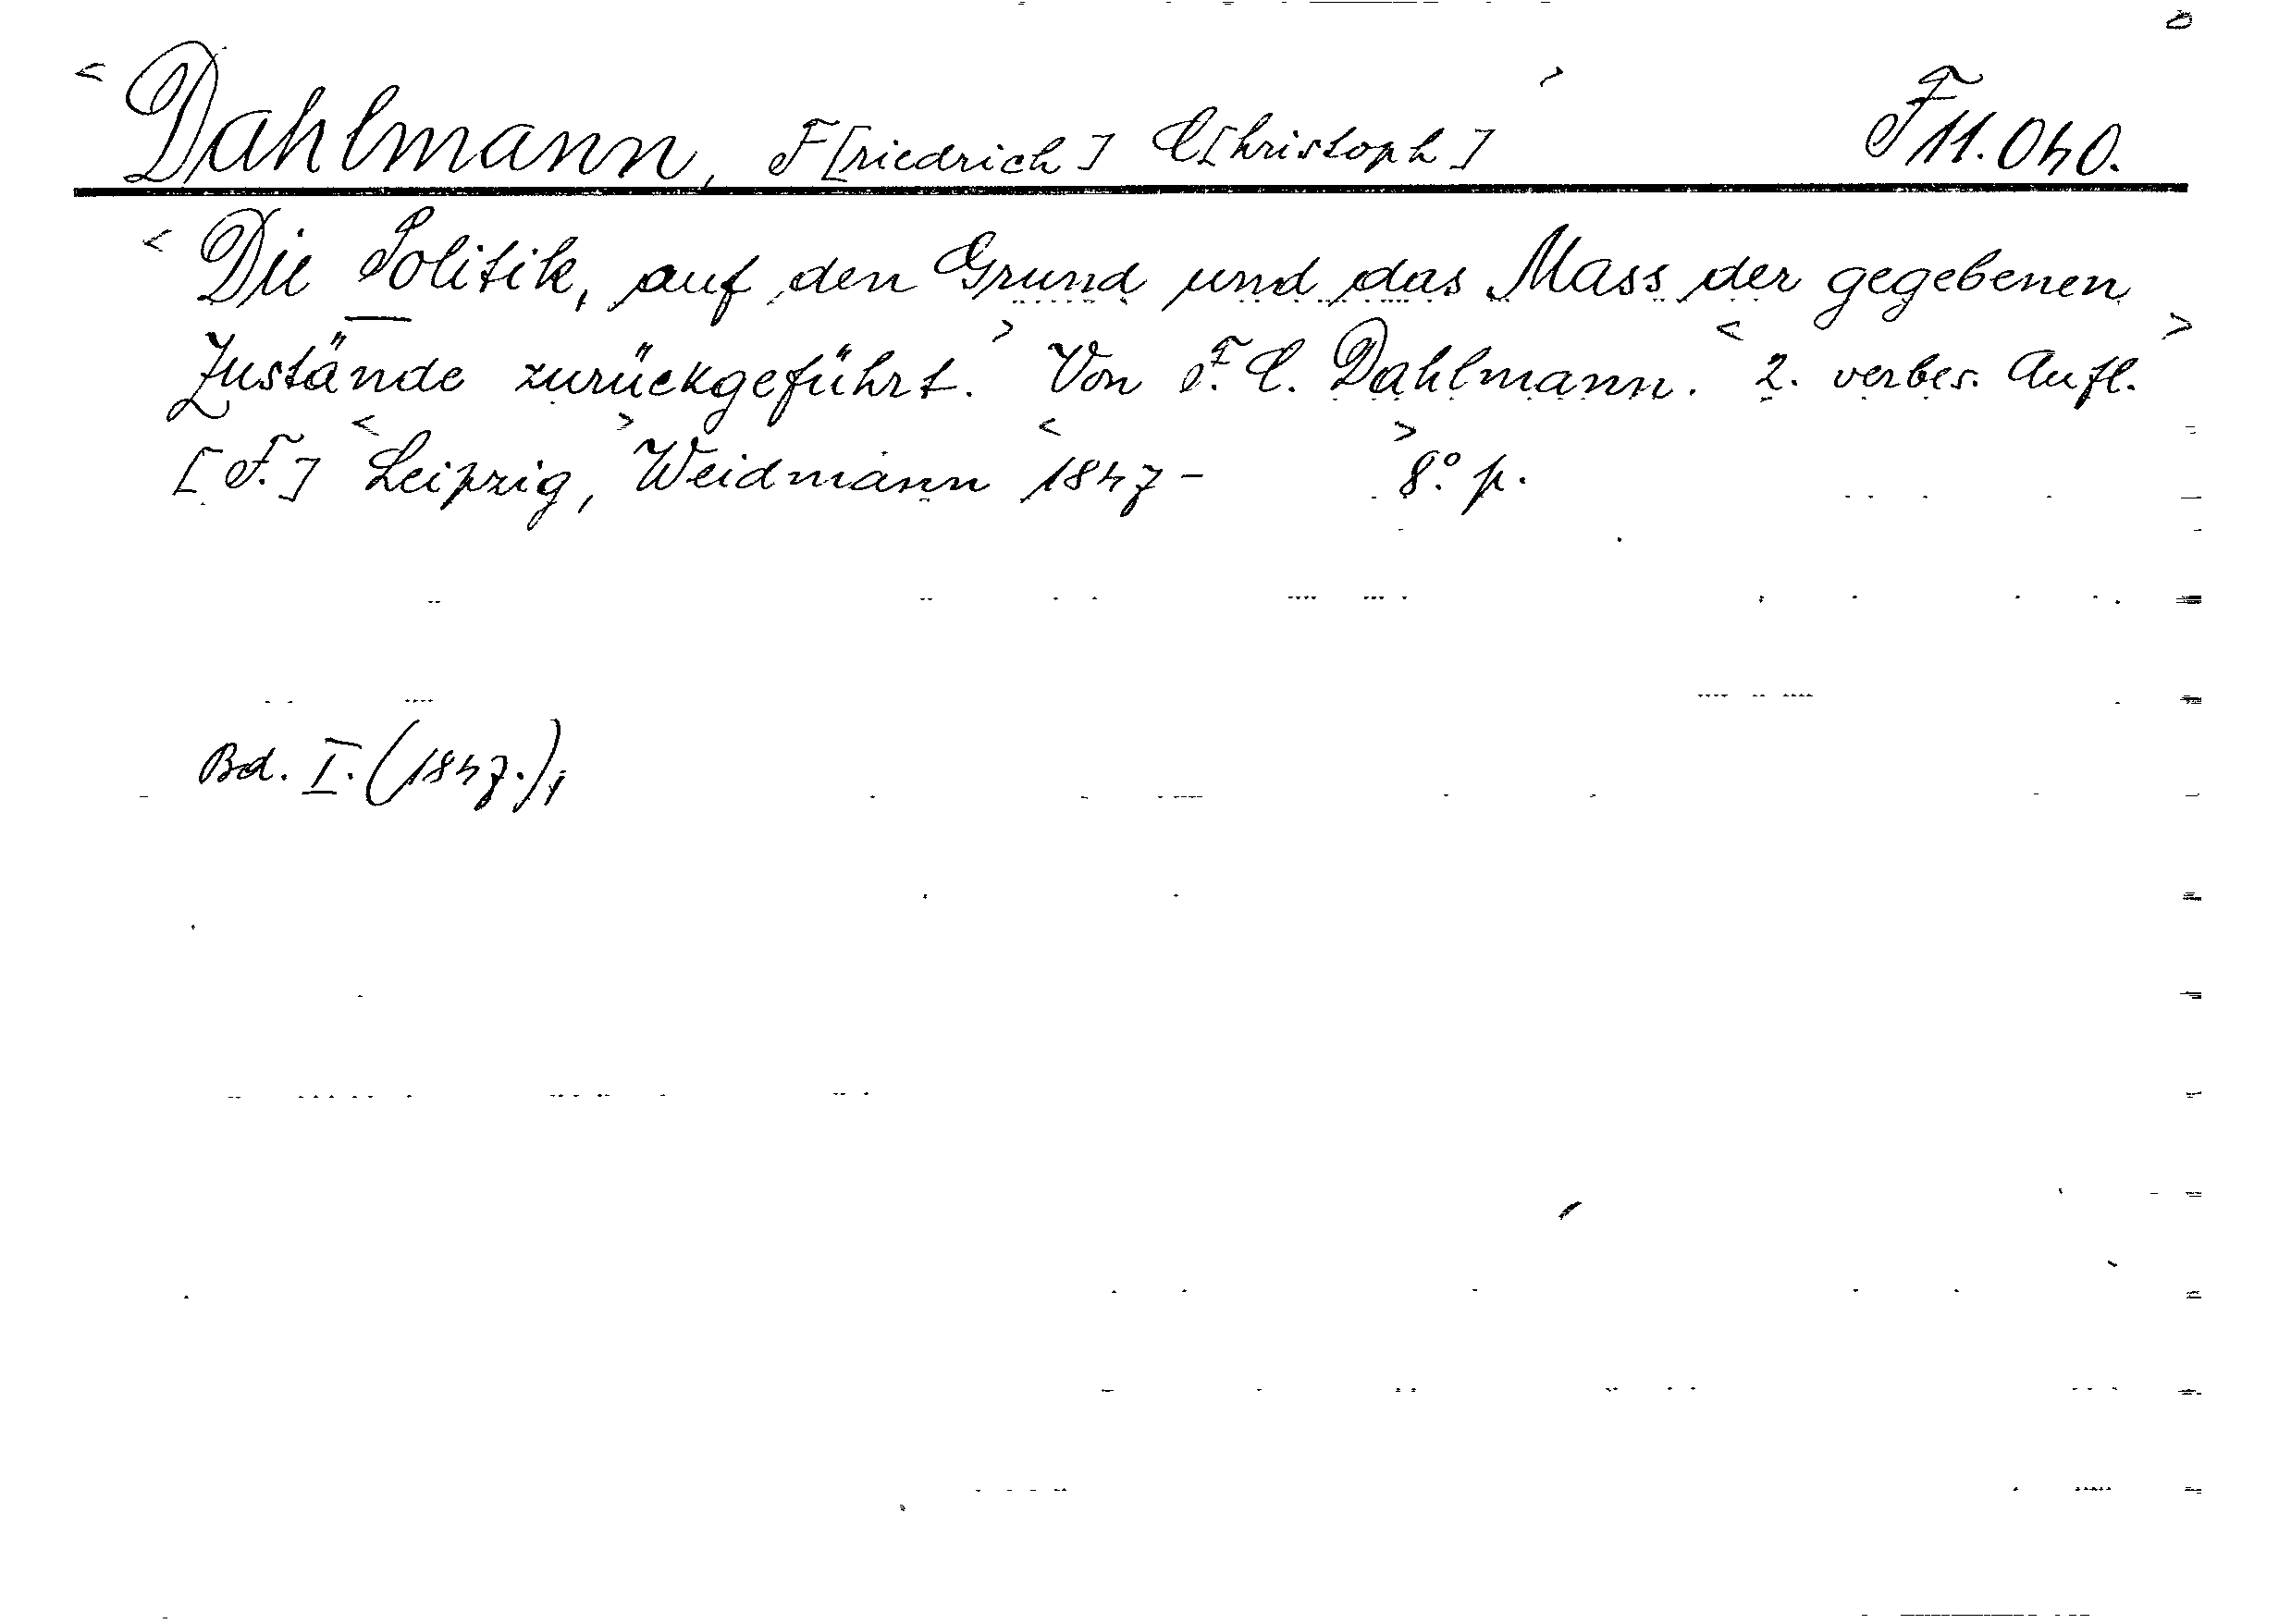 < Dahlmann, F[riedrich] C[hristoph] > F 11.040.
< Die Politik, auf den Grund und das Mass der gegebenen
Zustände zurückgeführt. > Von F. C. Dahlmann. < 2. verbes. Aufl. >
[F.] < Leipzig, > Weidmann < 1847 - > 8° p.
Bd. I. (1847.),